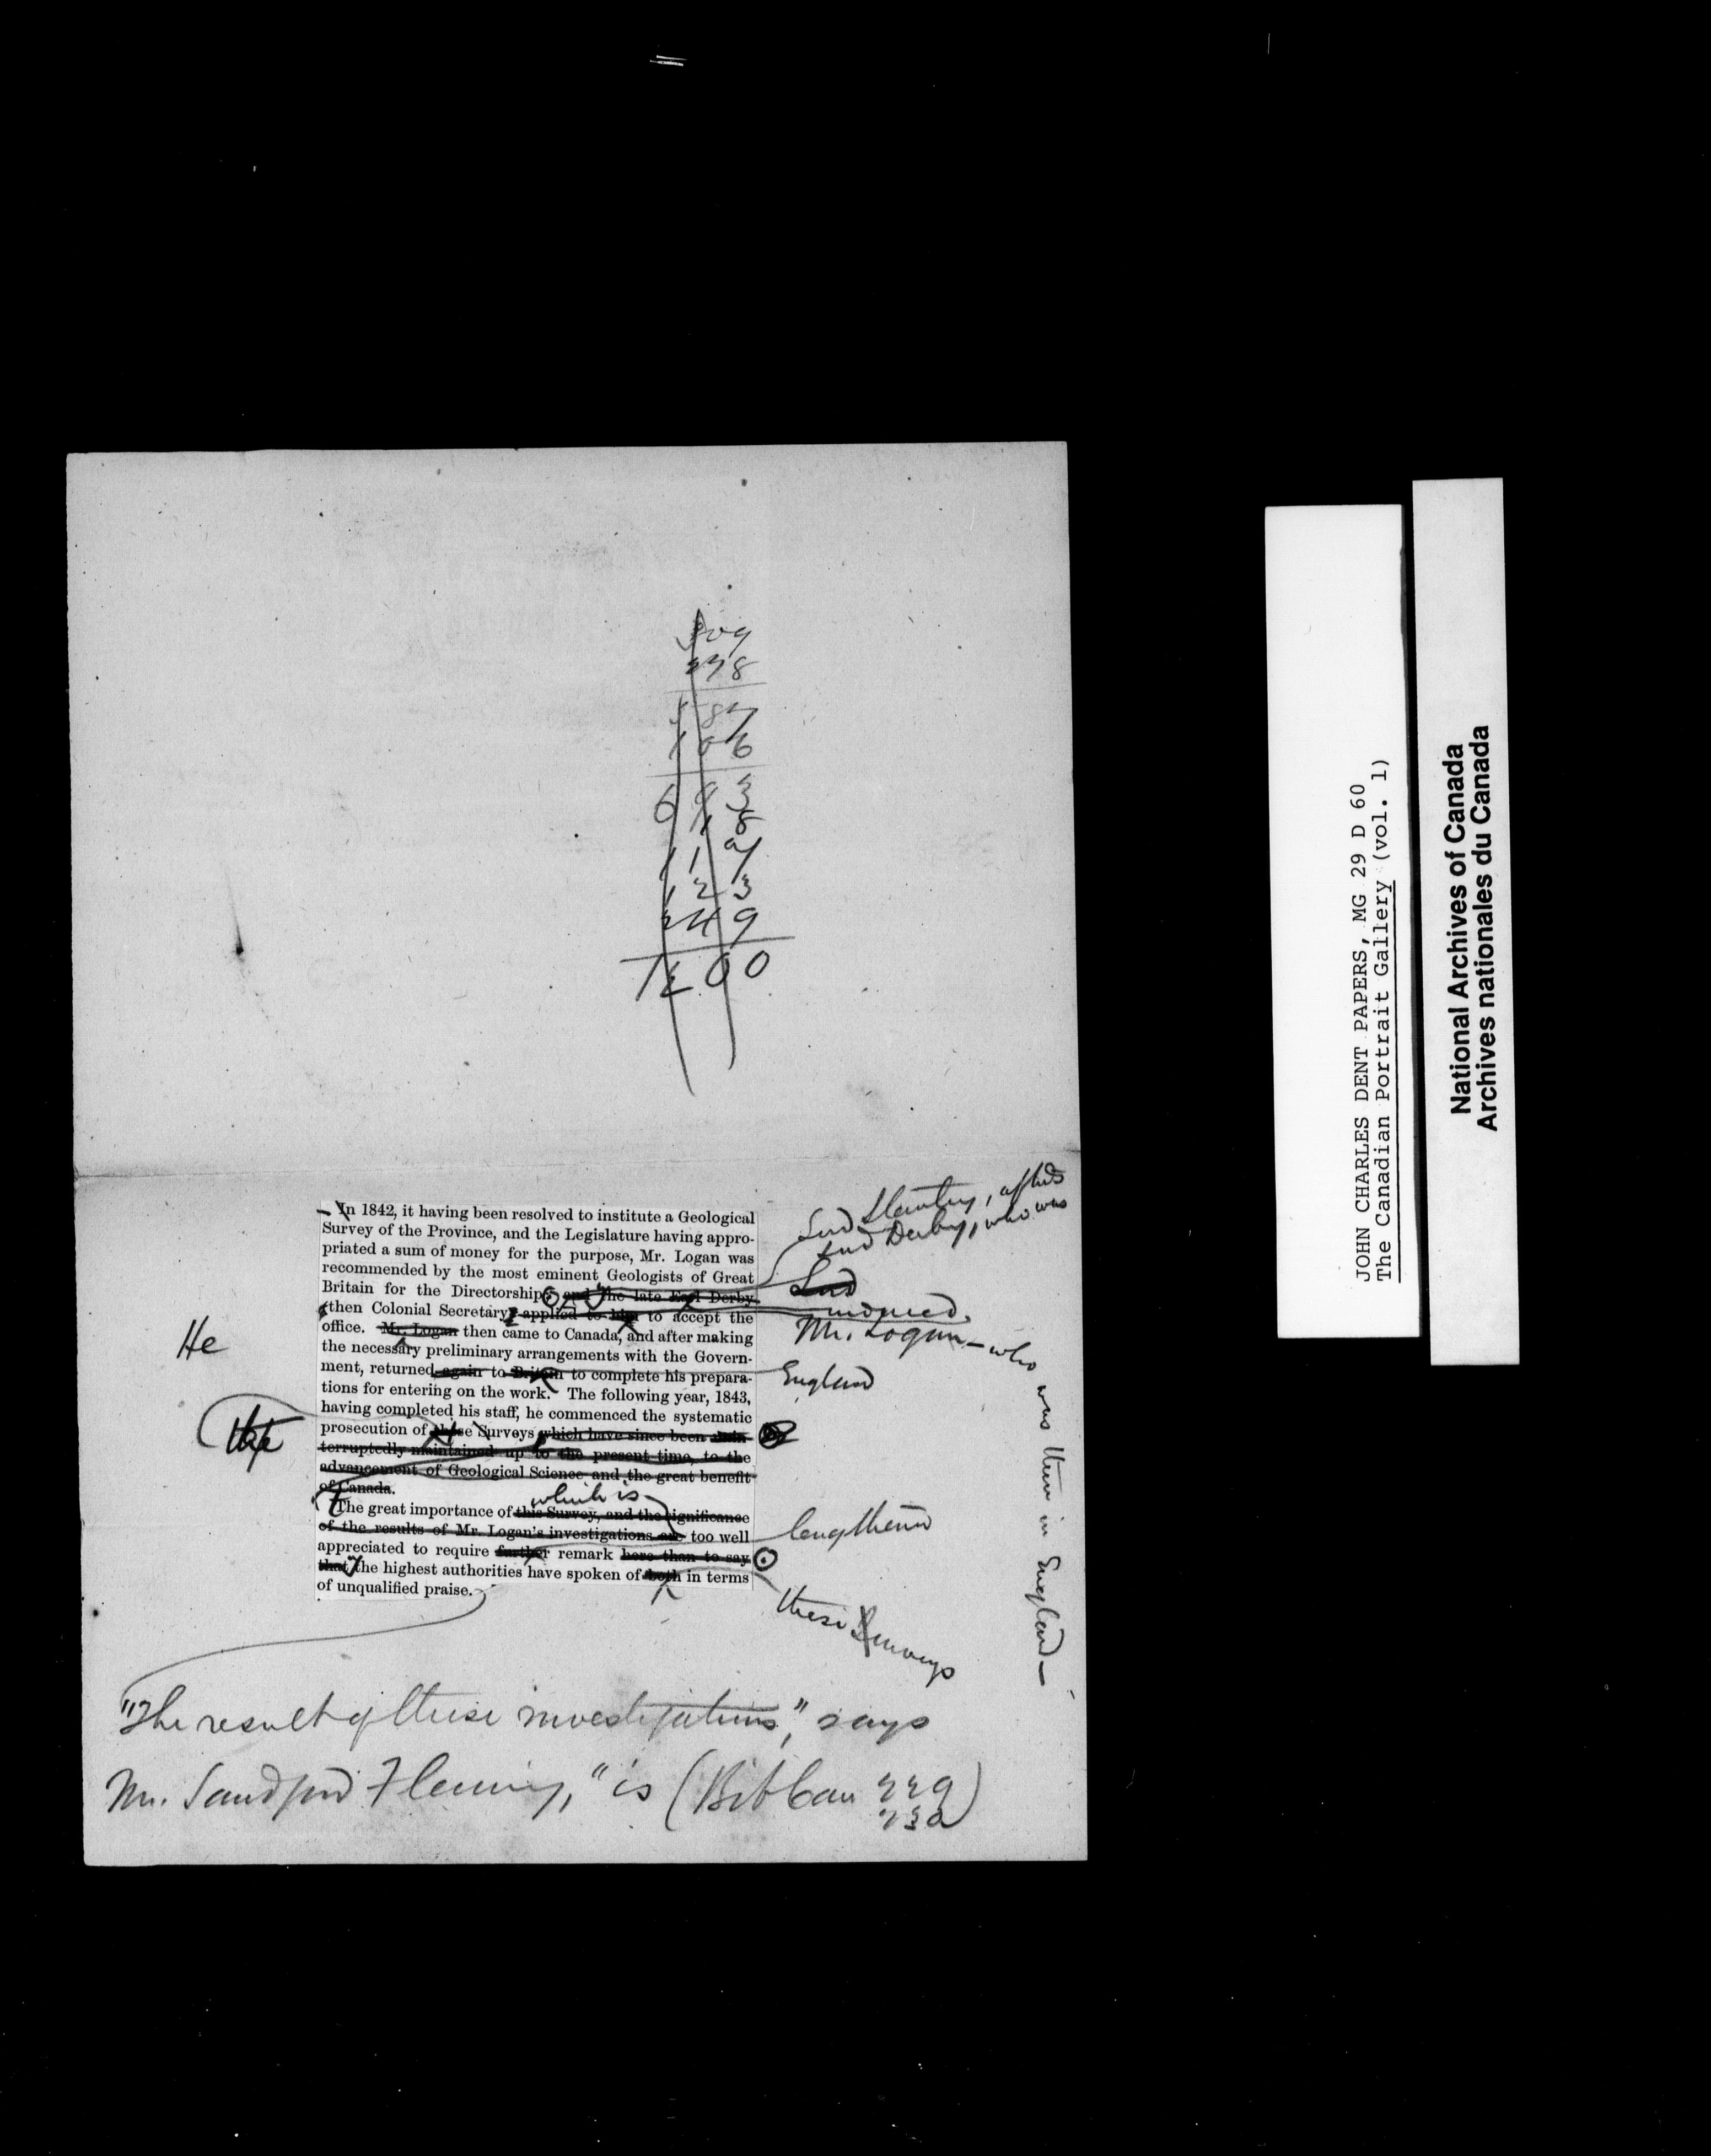 278
106
123
249
1200
In 1842, it having been resolved to institute a Geological
Survey of the Province, and the Legislature having appro-
priated a sum of money for the purpose, Mr. Logan was
recommended by the most eminent Geologists of Great
Britain for the Directorship, and the late Earl Derby
then Colonial Secretary, applied to him to accept the
office. Mr. Logan then came to Canada, and after making
the necessary preliminary arrangements with the Govern-
ment, returned again to Britain to complete his prepara-
tions for entering on the work. The following year, 1843,
having completed his staff, he commenced the systematic
prosecution of these Surveys which have since been unin-
terruptedly maintained up to the present time, to the
advancement of Geological Science and the great benefit
of Canada.
which is
The great importance of this Survey, and the significance
of the results of Mr. Logan's investigations are too well
appreciated to require further remark here than to say
that the highest authorities have spoken of both in terms
of unqualified praise.
Lord Stanley, aftds
Lord Derby, who was
Lord
induced
Mr. Logan—who was then in England—
He
England
the
lengthened
these Surveys
"The result of these investigations," says
Mr. Sandford Fleming, "is (Bib Can 229
230)
JOHN CHARLES DENT PAPERS, MG 29 D 60
The Canadian Portrait Gallery (vol. 1)
National Archives of Canada
Archives nationales du Canada